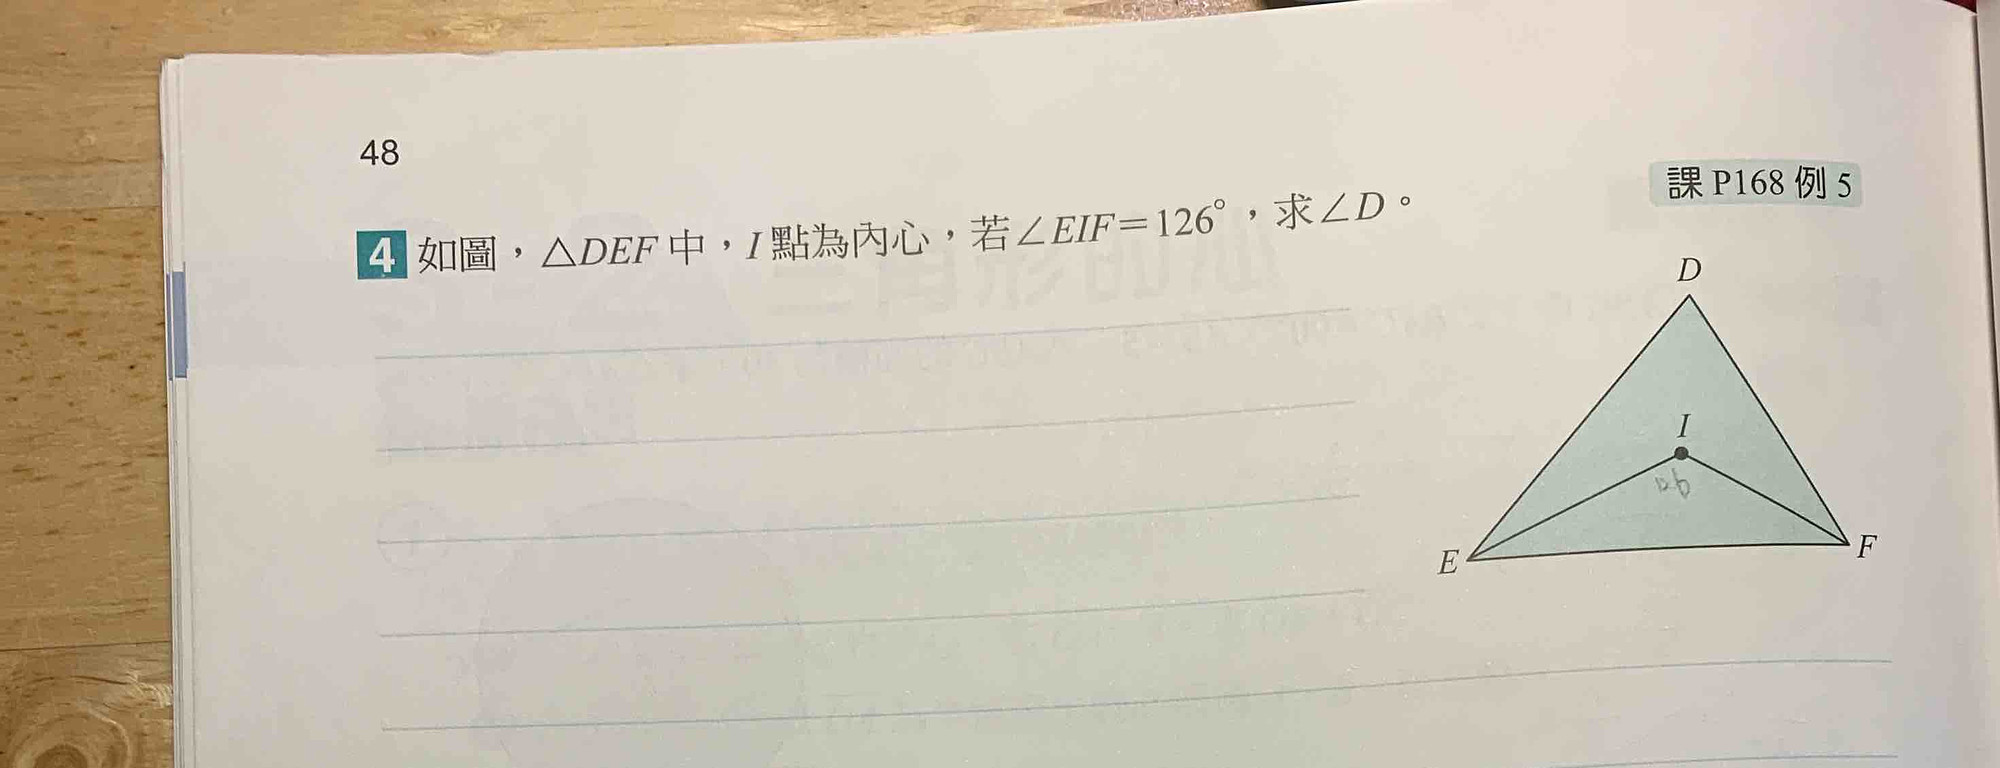 48
課 P168 例 5
4 如圖，△DEF 中，I 點為內心，若∠EIF＝126°，求∠D。
D
I
126
E
F